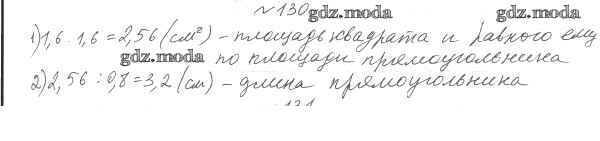 №130
gdz.moda gdz.moda
1) 1,6 · 1,6 = 2,56 (см²) – площадь квадрата и равного ему
gdz.moda по площади прямоугольника
2) 2,56 : 0,8 = 3,2 (см) – длина прямоугольника